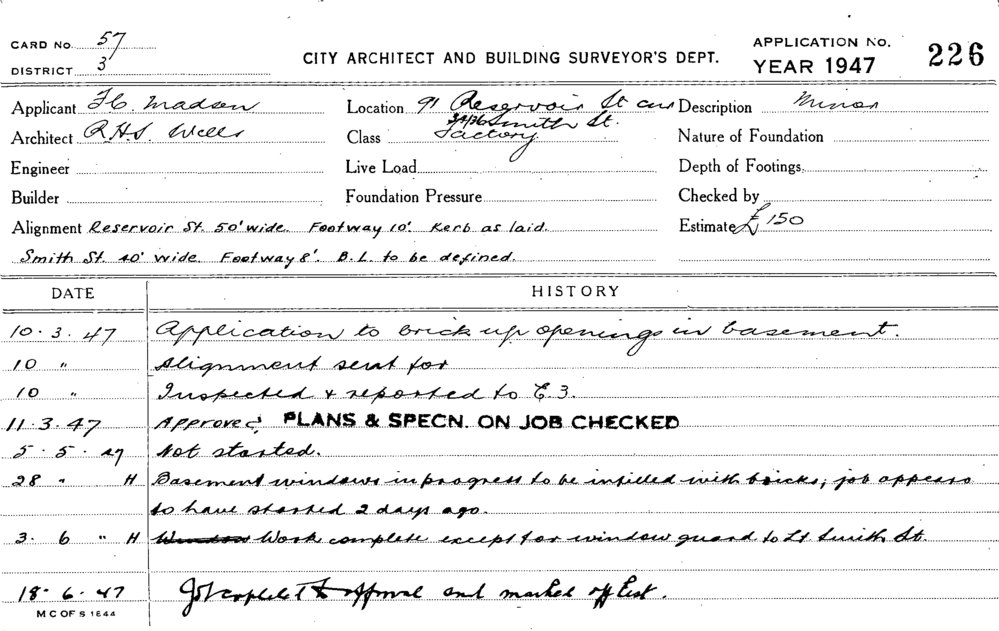 CARD No. 57
DISTRICT 3
CITY ARCHITECT AND BUILDING SURVEYOR'S DEPT.
APPLICATION No. 226
YEAR 1947
Applicant F.C. Madsen Location 91 Reservoir St cnr Description Minor
34/36 Smith St.
Architect R.H.S. Wells Class Factory Nature of Foundation
Engineer Live Load Depth of Footings
Builder Foundation Pressure Checked by
Alignment Reservoir St. 50' wide. Footway 10'. Kerb as laid. Estimate £150
Smith St. 40' wide. Footway 8'. B.L. to be defined.
DATE HISTORY
10.3.47 Application to brick up openings in basement.
10 " Alignment sent for
10 " Inspected & reported to E.3.
11.3.47 Approved. PLANS & SPECN. ON JOB CHECKED
5.5.47 Not started.
28 " H Basement windows in progress to be infilled with bricks; job appears
to have started 2 days ago.
3. 6 " H Window Work complete except for window guard to Lt Smith St.
18.6.47 Job complete to approval and marked off list.
M C OF S 1844